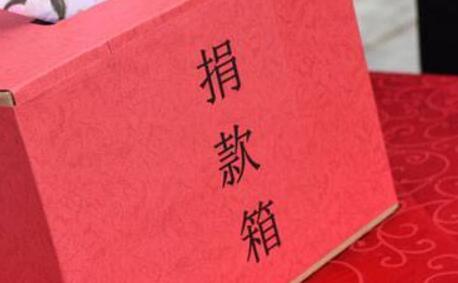 捐款箱